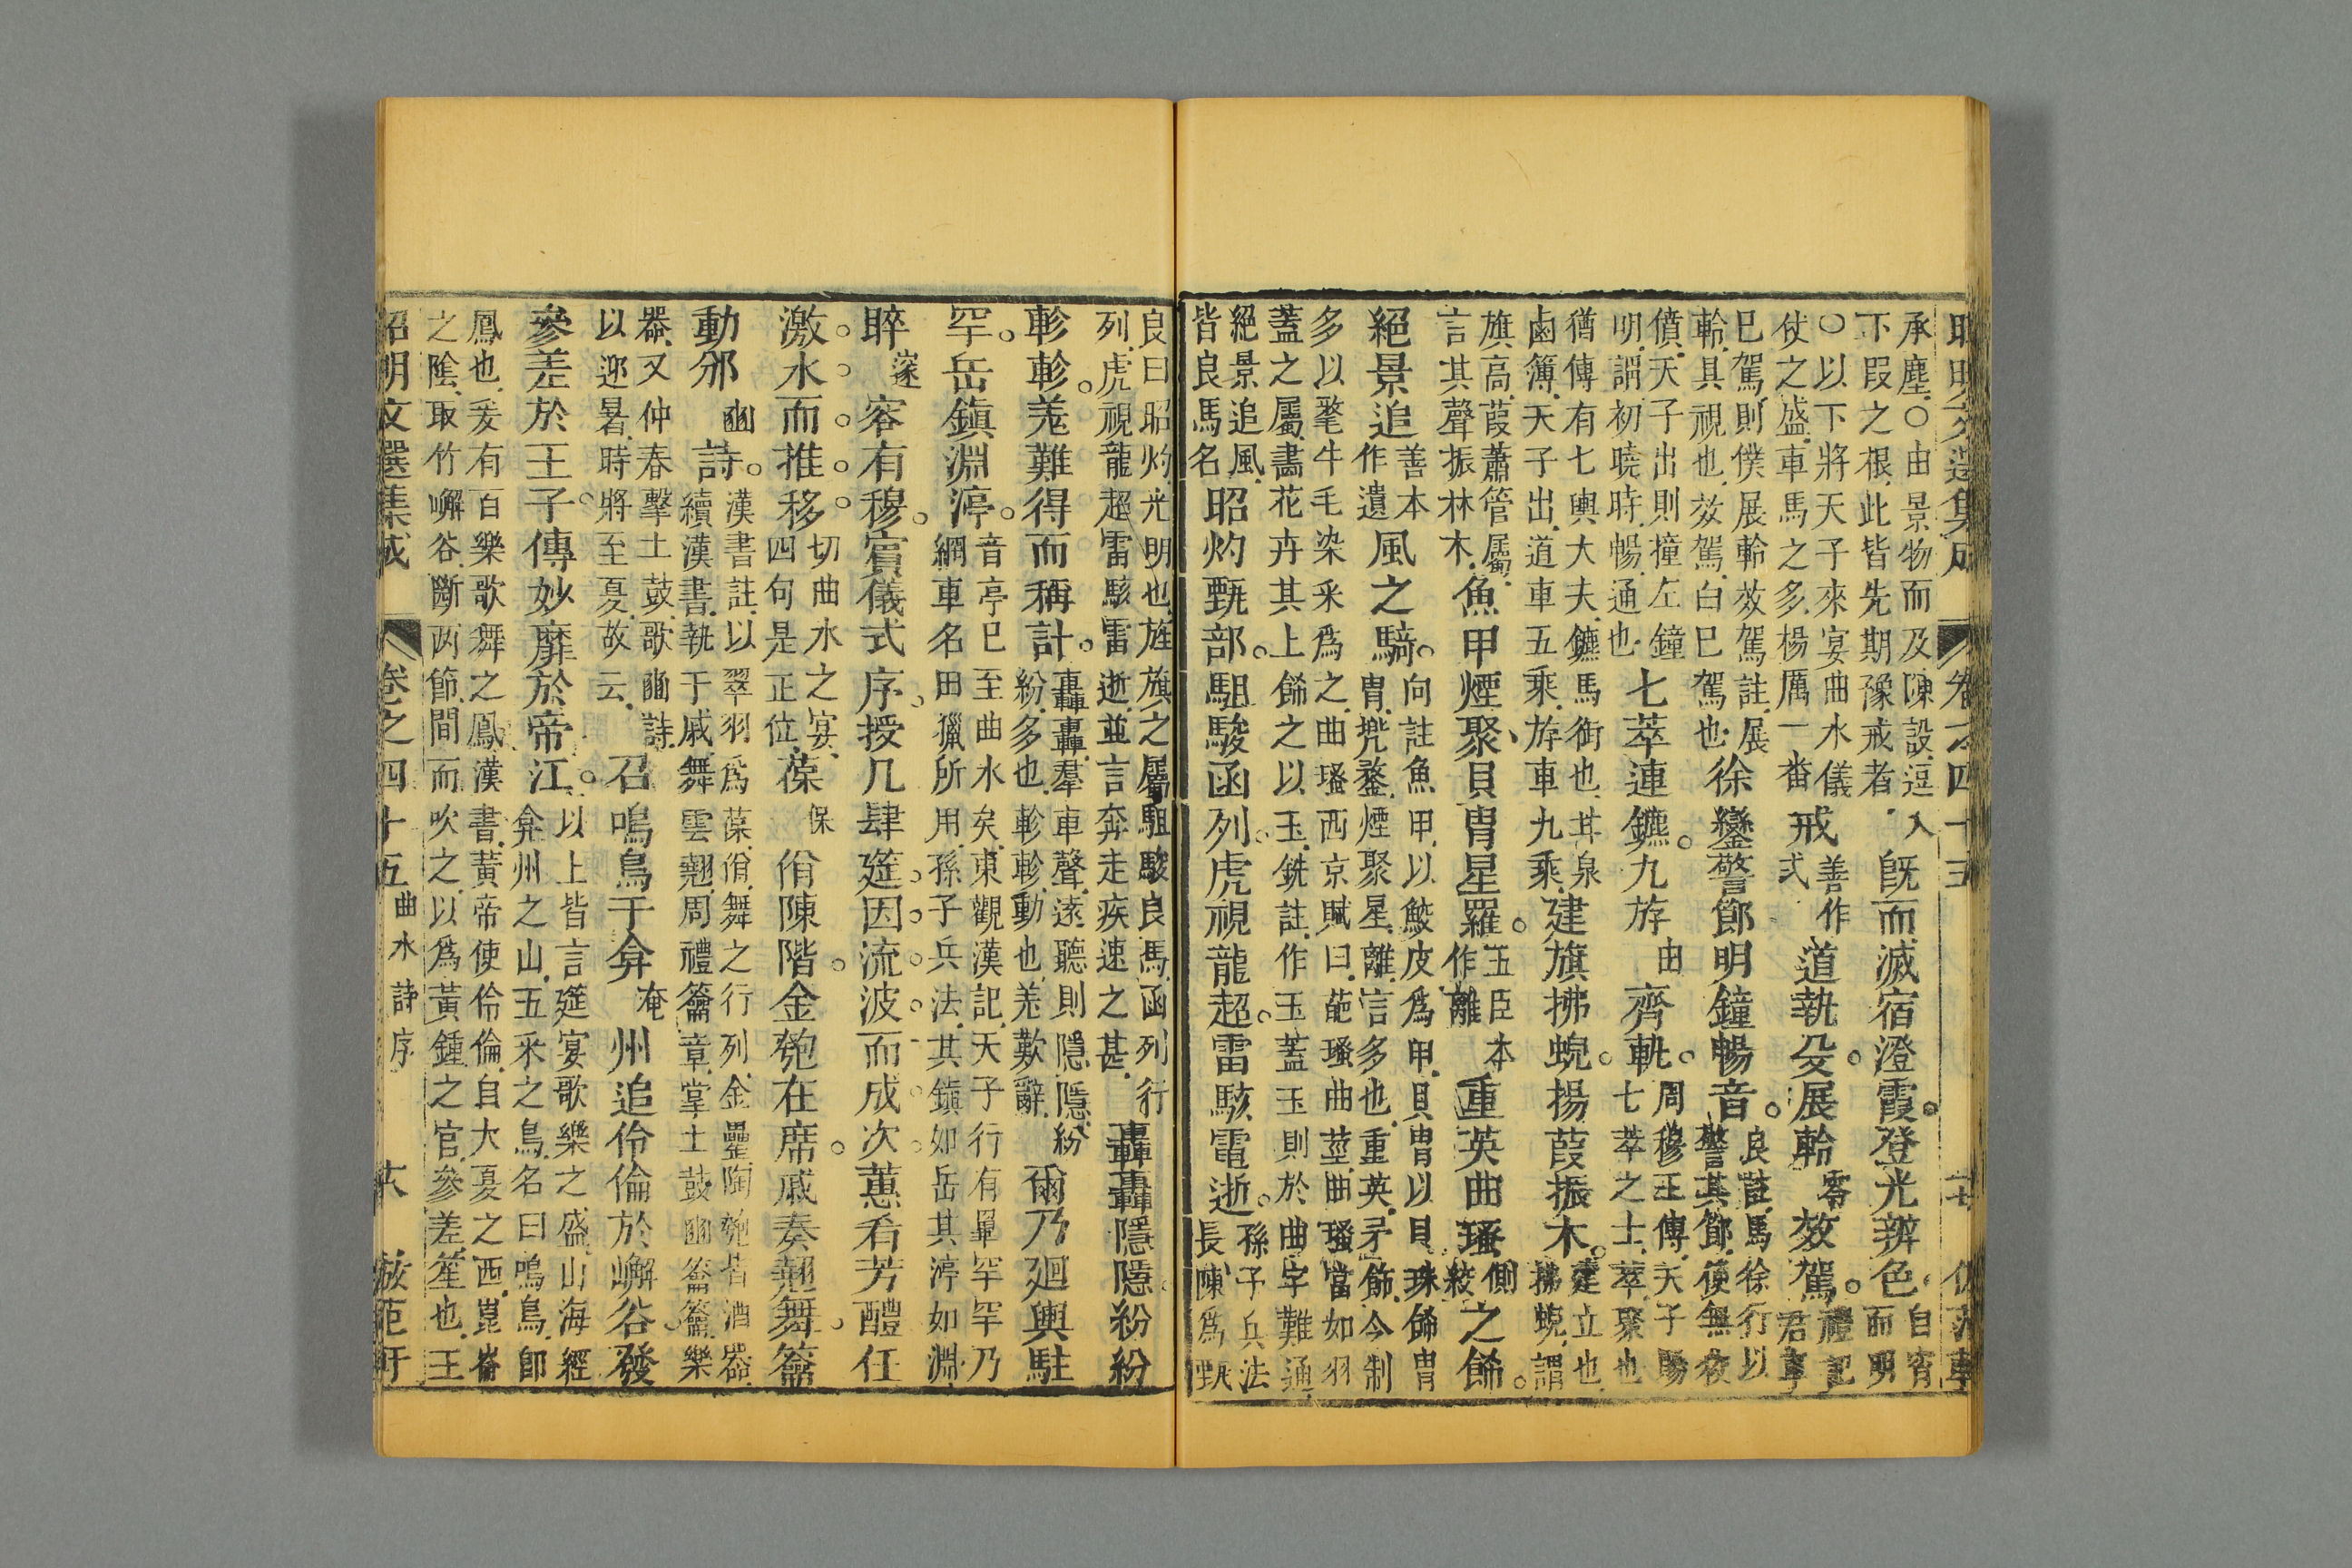 昭明文選集成 卷之四十五 十七 倣范軒
承塵○由景物而及陳設逗入
下叚之根此皆先期豫戒者
既而滅宿澄霞登光辨色
自宵
而明
○以下將天子來宴曲水儀
仗之盛車馬之多楊厲一畨
戒
善作
式
道執殳展軨
零
效駕
禮記
君車
巳駕則僕展軨效駕註展
軨具視也效駕白巳駕也
徐鑾警節明鐘暢音
良註馬徐行以
警其節使無疲
僨天子出則撞左鐘
明謂初曉時暢通也
七萃連鑣九斿
由
齊軌
周穆王傳天子賜
七萃之士萃聚也
猶傳有七輿大夫鑣馬銜也其泉
鹵簿天子出道車五乘斿車九乘
建旗拂蜺揚葭振木
建立也
拂蜺謂
旗高葭蕭管屬
言其聲振林木
魚甲煙聚貝胄星羅
五臣本
作離
重英曲瑵
側絞
之餙
絕景追
善本
作遺
風之騎
向註魚甲以鮫皮爲甲貝胄以貝珠餙胄
胄兠鍪煙聚星離言多也重英矛餙今制
多以氂牛毛染采爲之曲瑵西京賦曰葩瑵曲莖曲瑵當如羽
蓋之屬畵花卉其上餙之以玉銑註作玉蓋玉則於曲字難通
絕景追風
皆良馬名
昭灼甄部駔駿函列虎視龍超雷駭電逝
孫子兵法
長陳爲甄
良曰昭灼光明也旌旗之屬駔駿良馬函列行
列虎視龍超雷駭雷逝並言奔走疾速之甚
轟轟隱隱紛紛
軫軫羌難得而稱計
轟轟羣車聲遠聽則隱隱紛
紛多也軫軫動也羌歎辭
爾乃廻輿駐
罕岳鎮淵渟
音亭巳至曲水矣東觀漢記天子行有罼罕罕乃
網車名田獵所用孫子兵法其鎮如岳其渟如淵
睟
邃
容有穆賓儀式序授几肆筵因流波而成次蕙肴芳醴任
激水而推移
切曲水之宴
四句是正位
葆
保
佾陳階金匏在席戚奏翹舞籥
動邠
豳
詩
漢書註以翠羽爲葆佾舞之行列金罍陶匏皆酒器
續漢書執于戚舞雲翹周禮籥章掌土鼓豳籥籥樂
器又仲春擊土鼓歌豳詩
以迎暑時將至夏故云
召鳴鳥于弇
淹
州追伶倫於嶰谷發
參差於王子傳妙靡於帝江
以上皆言筵宴歌樂之盛山海經
弇州之山五采之鳥名曰鳴鳥卽
鳳也爰有百樂歌舞之鳳漢書黃帝使伶倫自大夏之西崑崙
之陰取竹嶰谷斷兩節間而吹之以爲黃鍾之官參差笙也王
昭明文選集成 卷之四十五 曲水詩序 十八 倣范軒